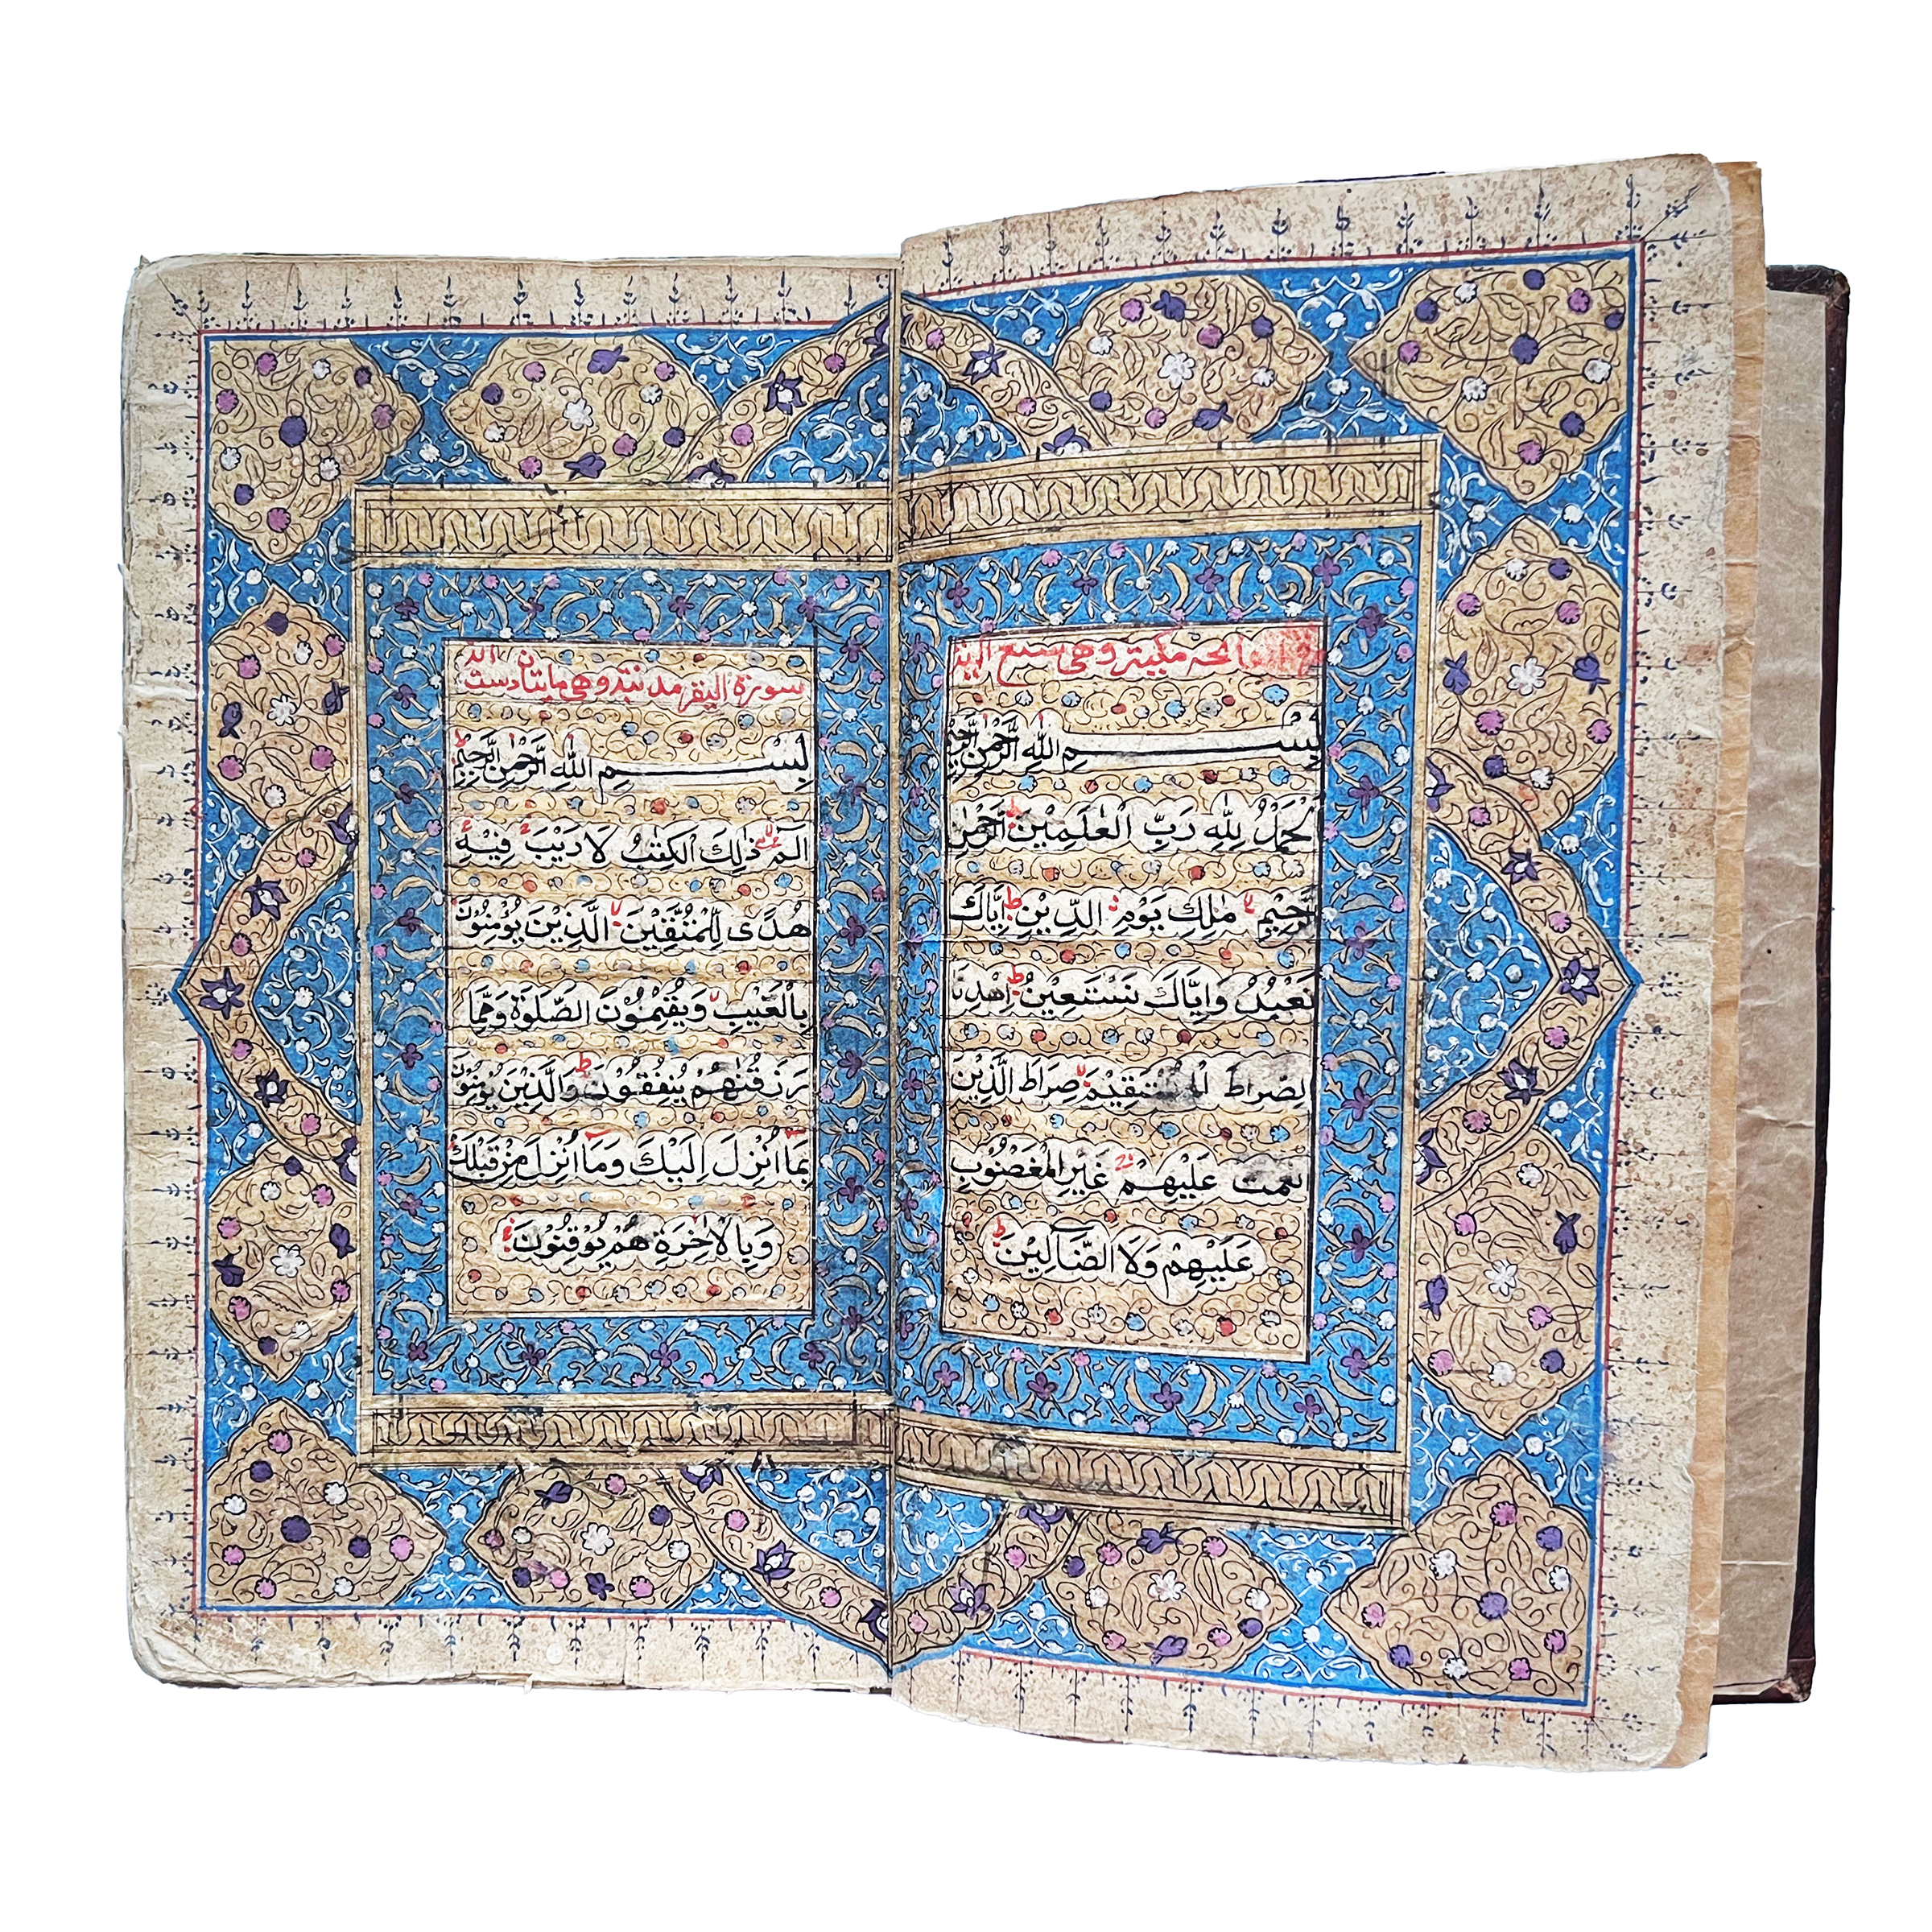 فاتحه مكية وهي سبع
بِسْمِ اللهِ الرَّحْمٰنِ الرَّحِيْمِ
اَلْحَمْدُ لِلّٰهِ رَبِّ الْعٰلَمِيْنَ الرَّحْمٰنِ
الرَّحِيْمِ مٰلِكِ يَوْمِ الدِّيْنِ اِيَّاكَ
نَعْبُدُ وَاِيَّاكَ نَسْتَعِيْنُ اِهْدِنَا
الصِّرَاطَ الْمُسْتَقِيْمَ صِرَاطَ الَّذِيْنَ
اَنْعَمْتَ عَلَيْهِمْ غَيْرِ الْمَغْضُوْبِ
عَلَيْهِمْ وَلَا الضَّآلِّيْنَ
سورة البقر مدنية وهي مايتان وست
بِسْمِ اللهِ الرَّحْمٰنِ الرَّحِيْمِ
الٓمّٓ ذٰلِكَ الْكِتٰبُ لَا رَيْبَ فِيْهِ
هُدًى لِّلْمُتَّقِيْنَ الَّذِيْنَ يُؤْمِنُوْنَ
بِالْغَيْبِ وَيُقِيْمُوْنَ الصَّلٰوةَ وَمِمَّا
رَزَقْنٰهُمْ يُنْفِقُوْنَ وَالَّذِيْنَ يُؤْمِنُوْنَ
بِمَا اُنْزِلَ اِلَيْكَ وَمَا اُنْزِلَ مِنْ قَبْلِكَ
وَبِالْاٰخِرَةِ هُمْ يُوْقِنُوْنَ